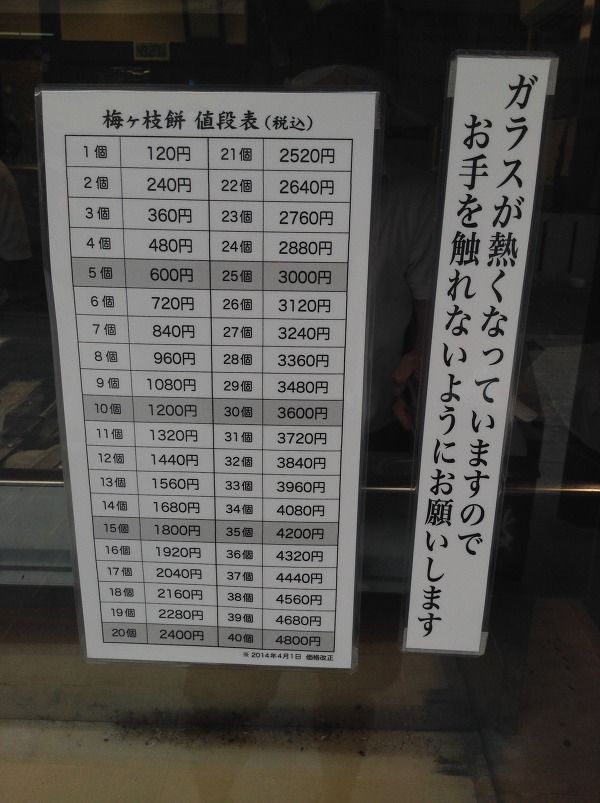 梅ヶ枝餅 値段表(税込)
1個 120円 21個 2520円
2個 240円 22個 2640円
3個 360円 23個 2760円
4個 480円 24個 2880円
5個 600円 25個 3000円
6個 720円 26個 3120円
7個 840円 27個 3240円
8個 960円 28個 3360円
9個 1080円 29個 3480円
10個 1200円 30個 3600円
11個 1320円 31個 3720円
12個 1440円 32個 3840円
13個 1560円 33個 3960円
14個 1680円 34個 4080円
15個 1800円 35個 4200円
16個 1920円 36個 4320円
17個 2040円 37個 4440円
18個 2160円 38個 4560円
19個 2280円 39個 4680円
20個 2400円 40個 4800円
※2014年4月1日 価格改正
ガラスが熱くなっていますので
お手を触れないようにお願いします